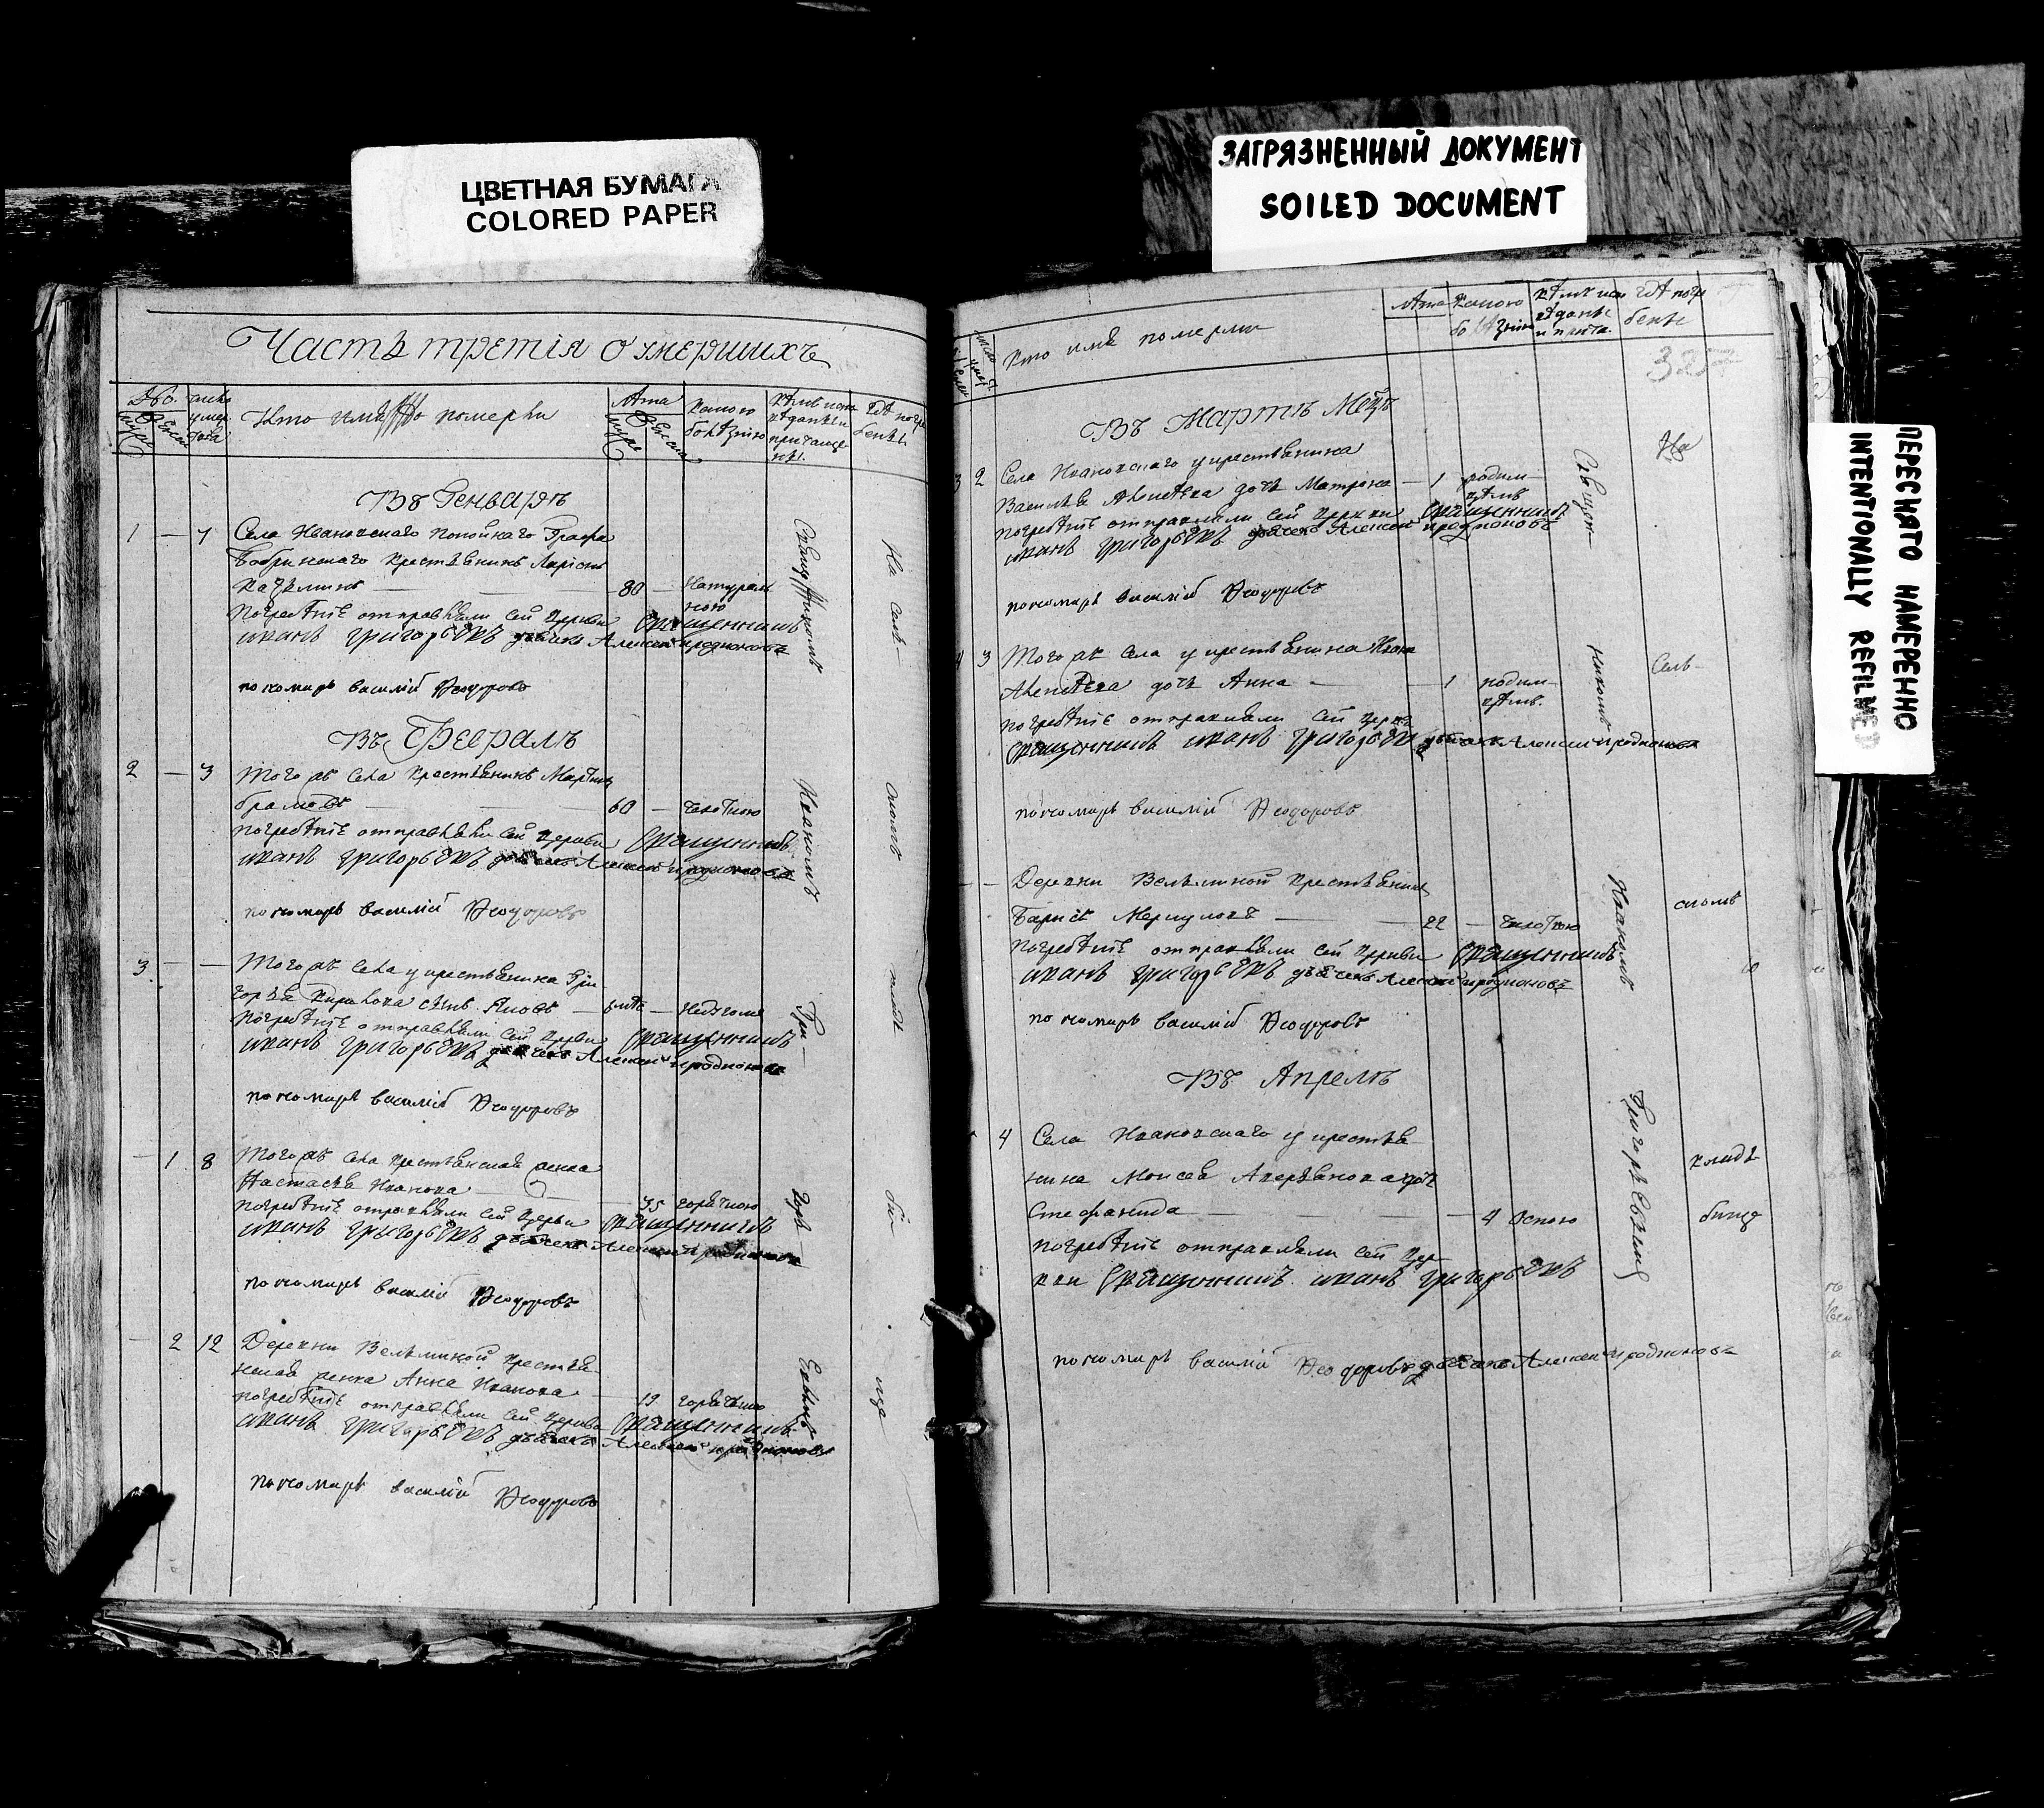 ЦВЕТНАЯ БУМАГА
COLORED PAPER
ЗАГРЯЗНЕННЫЙ ДОКУМЕНТ
SOILED DOCUMENT
ПЕРЕСНЯТО НАМЕРЕННО
INTENTIONALLY REFILMED
Часть третiя о умершихъ
Кто имянно померли
Лѣта
Въ Генварѣ
1 — 7 Села Ивановскаго покойнаго Графа
Бобринскаго крестьянинъ Ларiонъ
80 — Натураль
ною
погребенiе отправляли сей церкви священникъ
иванъ григорьевъ дьячекъ Алексей иродионовъ
пономарь василiй Ѳеодоровъ
Въ Февралѣ
2 — 3 Того жъ села крестьянинъ Мартинъ
60 — чахоткою
погребенiе отправляли сей церкви священникъ
иванъ григорьевъ дьячекъ Алексей иродионовъ
пономарь василiй Ѳеодоровъ
3 — — Того жъ села у крестьянина Гри
горья Кирилова сынъ Яковъ
погребенiе отправляли сей церкви священникъ
иванъ григорьевъ дьячекъ Алексей иродионовъ
пономарь василiй Ѳеодоровъ
— 1 8 Того жъ села крестьянская женка
Настасья Иванова — 35 горячкою
погребенiе отправляли сей церкви священникъ
иванъ григорьевъ дьячекъ Алексей иродионовъ
пономарь василiй Ѳеодоровъ
— 2 12 Деревни Вельминой крестья
нская женка Анна Иванова — 19 горячкою
погребенiе отправляли сей церкви священникъ
иванъ григорьевъ дьячекъ Алексей иродионовъ
пономарь василiй Ѳеодоровъ
Священникомъ Иваномъ Григорьевымъ
На сель
Кто имя померли
Лѣта
327
Въ Мартѣ Мцѣ
3 2 Села Ивановскаго у крестьянина
Василья дочь Матрона — 1 родим
цѣмъ
погребенiе отправляли сей церкви священникъ
иванъ григорьевъ дьячекъ Алексей иродионовъ
пономарь василiй Ѳеодоровъ
4 3 Того жъ села у крестьянина Ивана
дочь Анна — 1 родим
цѣмъ
погребенiе отправляли сей церкви
священникъ иванъ григорьевъ дьячекъ Алексей иродионовъ
пономарь василiй Ѳеодоровъ
— — Деревни Вельминой крестьянинъ
Борисъ Меркуловъ — 22 — чахоткою
погребенiе отправляли сей церкви священникъ
иванъ григорьевъ дьячекъ Алексей иродионовъ
пономарь василiй Ѳеодоровъ
Въ Апрелѣ
4 Села Ивановскаго у крестья
нина Моисея Аверьянова дочь
Стефанида — 4 Оспою
погребенiе отправляли сей цер
кви священникъ иванъ григорьевъ
пономарь василiй Ѳеодоровъ дьячекъ Алексей иродионовъ
Священ
никомъ
Иваномъ
Григорьевымъ
На
Сель
скомъ
кладъ
бище